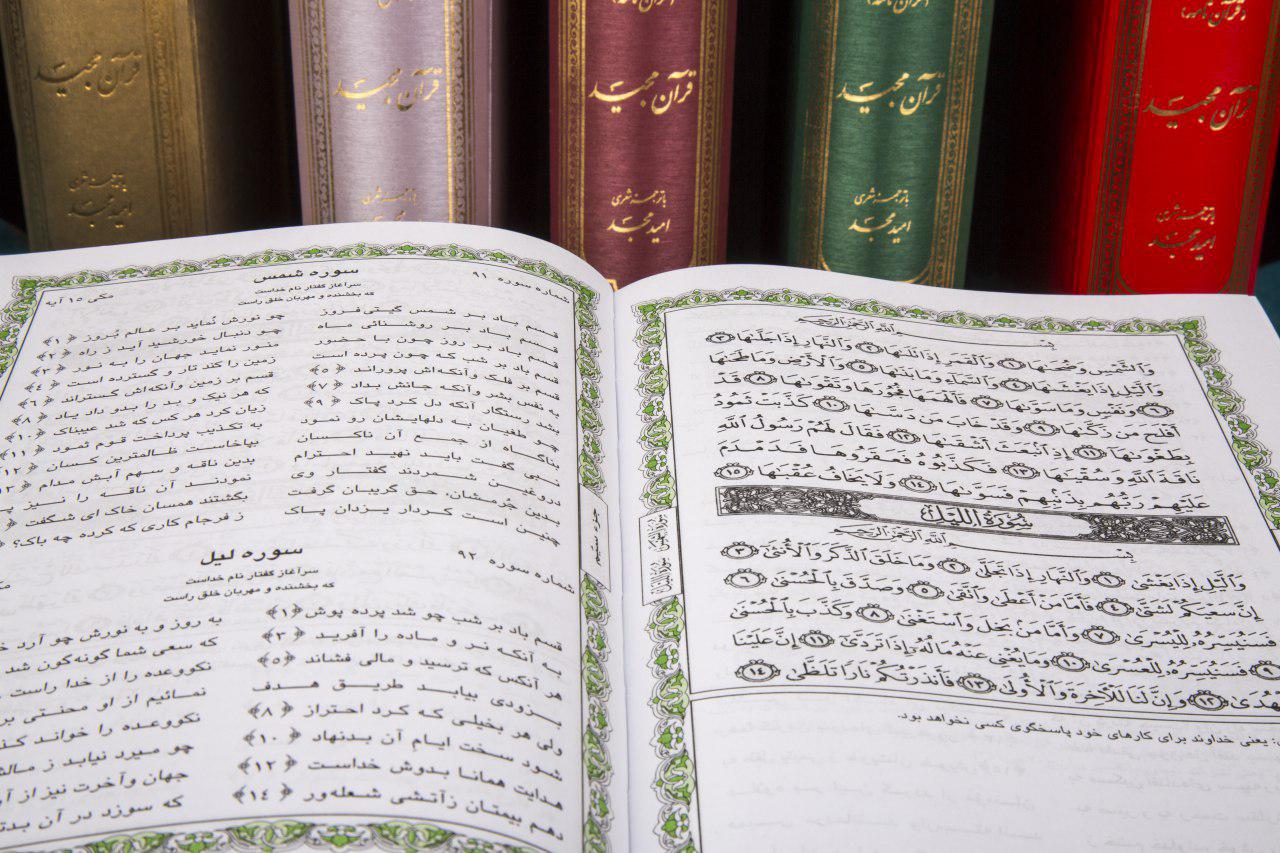 قرآن مجید
باترجمه شعری
امید مجد
قرآن مجید
باترجمه شعری
امید مجد
قرآن مجید
باترجمه شعری
امید مجد
قرآن مجید
باترجمه شعری
قرآن مجید
باترجمه شعری
امید مجد
بِسْمِ اللَّهِ الرَّحْمَنِ الرَّحِيمِ
وَالشَّمْسِ وَضُحَىٰهَا ۝١ وَالْقَمَرِ إِذَا تَلَىٰهَا ۝٢ وَالنَّهَارِ إِذَا جَلَّىٰهَا ۝٣
وَالَّيْلِ إِذَا يَغْشَىٰهَا ۝٤ وَالسَّمَآءِ وَمَا بَنَىٰهَا ۝٥ وَالْأَرْضِ وَمَا طَحَىٰهَا
۝٦ وَنَفْسٍ وَمَا سَوَّىٰهَا ۝٧ فَأَلْهَمَهَا فُجُورَهَا وَتَقْوَىٰهَا ۝٨ قَدْ
أَفْلَحَ مَن زَكَّىٰهَا ۝٩ وَقَدْ خَابَ مَن دَسَّىٰهَا ۝١٠ كَذَّبَتْ ثَمُودُ
بِطَغْوَىٰهَا ۝١١ إِذِ انۢبَعَثَ أَشْقَىٰهَا ۝١٢ فَقَالَ لَهُمْ رَسُولُ اللَّهِ
نَاقَةَ اللَّهِ وَسُقْيَٰهَا ۝١٣ فَكَذَّبُوهُ فَعَقَرُوهَا فَدَمْدَمَ
عَلَيْهِمْ رَبُّهُم بِذَنۢبِهِمْ فَسَوَّىٰهَا ۝١٤ وَلَا يَخَافُ عُقْبَٰهَا ۝١٥
سُورَةُ اللَّيْلِ
بِسْمِ اللَّهِ الرَّحْمَنِ الرَّحِيمِ
وَالَّيْلِ إِذَا يَغْشَىٰ ۝١ وَالنَّهَارِ إِذَا تَجَلَّىٰ ۝٢ وَمَا خَلَقَ الذَّكَرَ وَالْأُنثَىٰ ۝٣
إِنَّ سَعْيَكُمْ لَشَتَّىٰ ۝٤ فَأَمَّا مَنْ أَعْطَىٰ وَاتَّقَىٰ ۝٥ وَصَدَّقَ بِالْحُسْنَىٰ ۝٦
فَسَنُيَسِّرُهُۥ لِلْيُسْرَىٰ ۝٧ وَأَمَّا مَنۢ بَخِلَ وَاسْتَغْنَىٰ ۝٨ وَكَذَّبَ بِالْحُسْنَىٰ
۝٩ فَسَنُيَسِّرُهُۥ لِلْعُسْرَىٰ ۝١٠ وَمَا يُغْنِى عَنْهُ مَالُهُۥٓ إِذَا تَرَدَّىٰٓ ۝١١ إِنَّ عَلَيْنَا
هُدَىٰ ۝١٢ وَإِنَّ لَنَا لَلْأَخِرَةَ وَالْأُولَىٰ ۝١٣ فَأَنذَرْتُكُمْ نَارًا تَلَظَّىٰ ۝١٤
: یعنی خداوند برای کارهای خود پاسخگوی کسی نخواهد بود.
شماره سوره ۹۱ سوره شمس مکی ۱۵ آیه
سرآغاز گفتار نام خداست
که بخشنده و مهربان خلق راست
قسم باد بر شمس گیتی فروز چو نورش نُماید بر عالم بُروز ﴿۱﴾
قسم باد بر روشنائی ماه چو دنبال خورشید آید ز راه ﴿۲﴾
قسم باد بر روز چون با حضور منور نماید جهان را به نور ﴿۳﴾
قسم باد بر شب که چون پرده است زمین را کند تار و گسترده است ﴿۴﴾
قسم بر فلک وآنکه‌اش پروراند ﴿۵﴾ قسم بر زمین وآنکه‌اش گستراند ﴿۶﴾
به نفس بشر وآنکه جانش بداد ﴿۷﴾ که هر نیک و بد را بدو داد یاد ﴿۸﴾
بشد رستگار آنکه دل کرد پاک ﴿۹﴾ زیان کرد هر کس که شد عیبناک ﴿۱۰﴾
چو طغیان به دلهایشان رو نمود به تکذیب پرداخت قوم ثمود ﴿۱۱﴾
بناگاه از جمع آن ناکسان بپاخاست ظالمترین کسان ﴿۱۲﴾
نبی گفت باید نهید احترام بدین ناقه و سهم آبش مدام
دروغین شمردند گفتار وی نمودند آن ناقه را نیز
بدین جُرمشان، حق گریبان گرفت بگشتند همسان خاک ای شگفت
چنین است کردار یزدان پاک ز فرجام کاری که کرده چه باک؟
شماره سوره ۹۲ سوره لیل
سرآغاز گفتار نام خداست
که بخشنده و مهربان خلق راست
قسم باد بر شب چو شد پرده پوش ﴿۱﴾ به روز و به نورش چو آرد
به آنکه نر و ماده را آفرید ﴿۳﴾ که سعی شما گونه‌گون شد
هر آنکس که ترسید و مالی فشاند ﴿۵﴾ نکووعده را از خدا راست
بزودی بیابد طریق هدف نمائیم از او محنتی
ولی هر بخیلی که کرد احتراز ﴿۸﴾ نکووعده را خواند
شود سخت ایام آن بدنهاد ﴿۱۰﴾ چو میرد نیابد ز
هدایت همانا بدوش خداست ﴿۱۲﴾ جهان وآخرت نیز از
دهم بیمتان زآتشی شعله‌ور ﴿۱۴﴾ که سوزد در آن
جزء سی‌ام